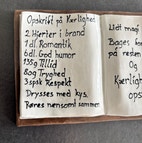 Opskrift på Kærlighet
2 Hjerter i brand
1 dl. Romantik
6 dl. God humor
135g Tillid
80g Tryghed
3 spsk Respekt
Drysses med kys.
Røres nænsomt sammen
Lidt magi
Bages for
på resten
Og
Kærligh
ops